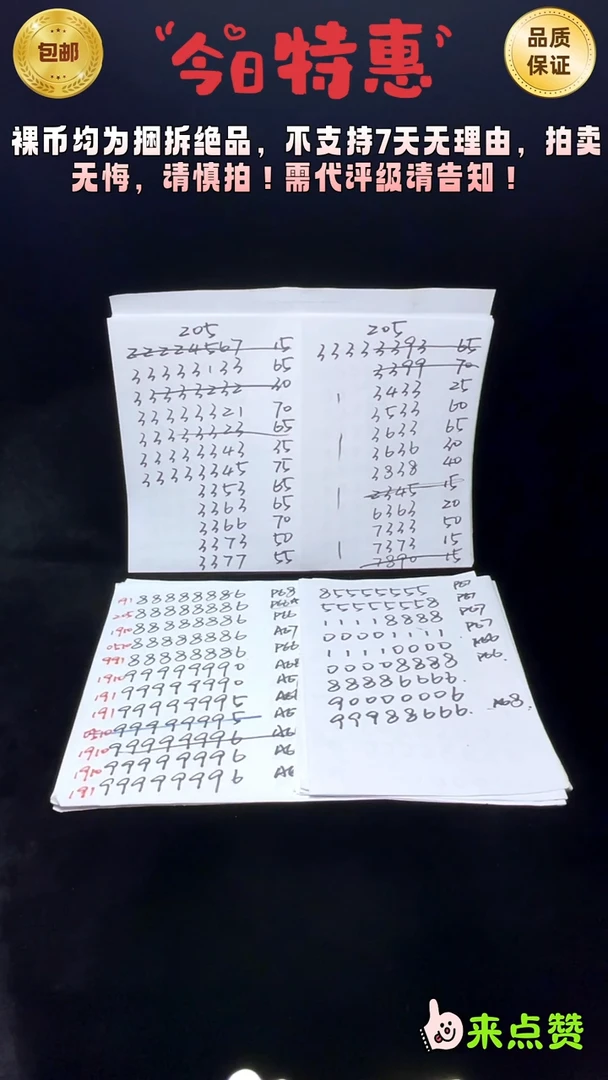 包邮
今日特惠
品质
保证
裸币均为捆拆绝品，不支持7天无理由，拍卖
无悔，请慎拍！需代评级请告知！
205
22224567 15
33333133 65
33333232 30
33333321 70
33333323 65
33333343 35
33333345 75
3353 65
3363 65
3366 70
3373 50
3377 55
205
33333393 65
3399 70
3433 25
3533 60
3633 65
3636 30
3838 40
2345 15
6363 20
7333 50
7373 15
7890 15
191 88888886 P68
205 88888886
1910 88888886
0510 88888886 P66
991 88888886
1910 99999990
191 99999990
191 99999995
99999995
1910 99999996
1910 99999996
191 99999996
85555555
55555558
11118888
00001111
11110000
00008888
88886666
90000006
99988666
来点赞